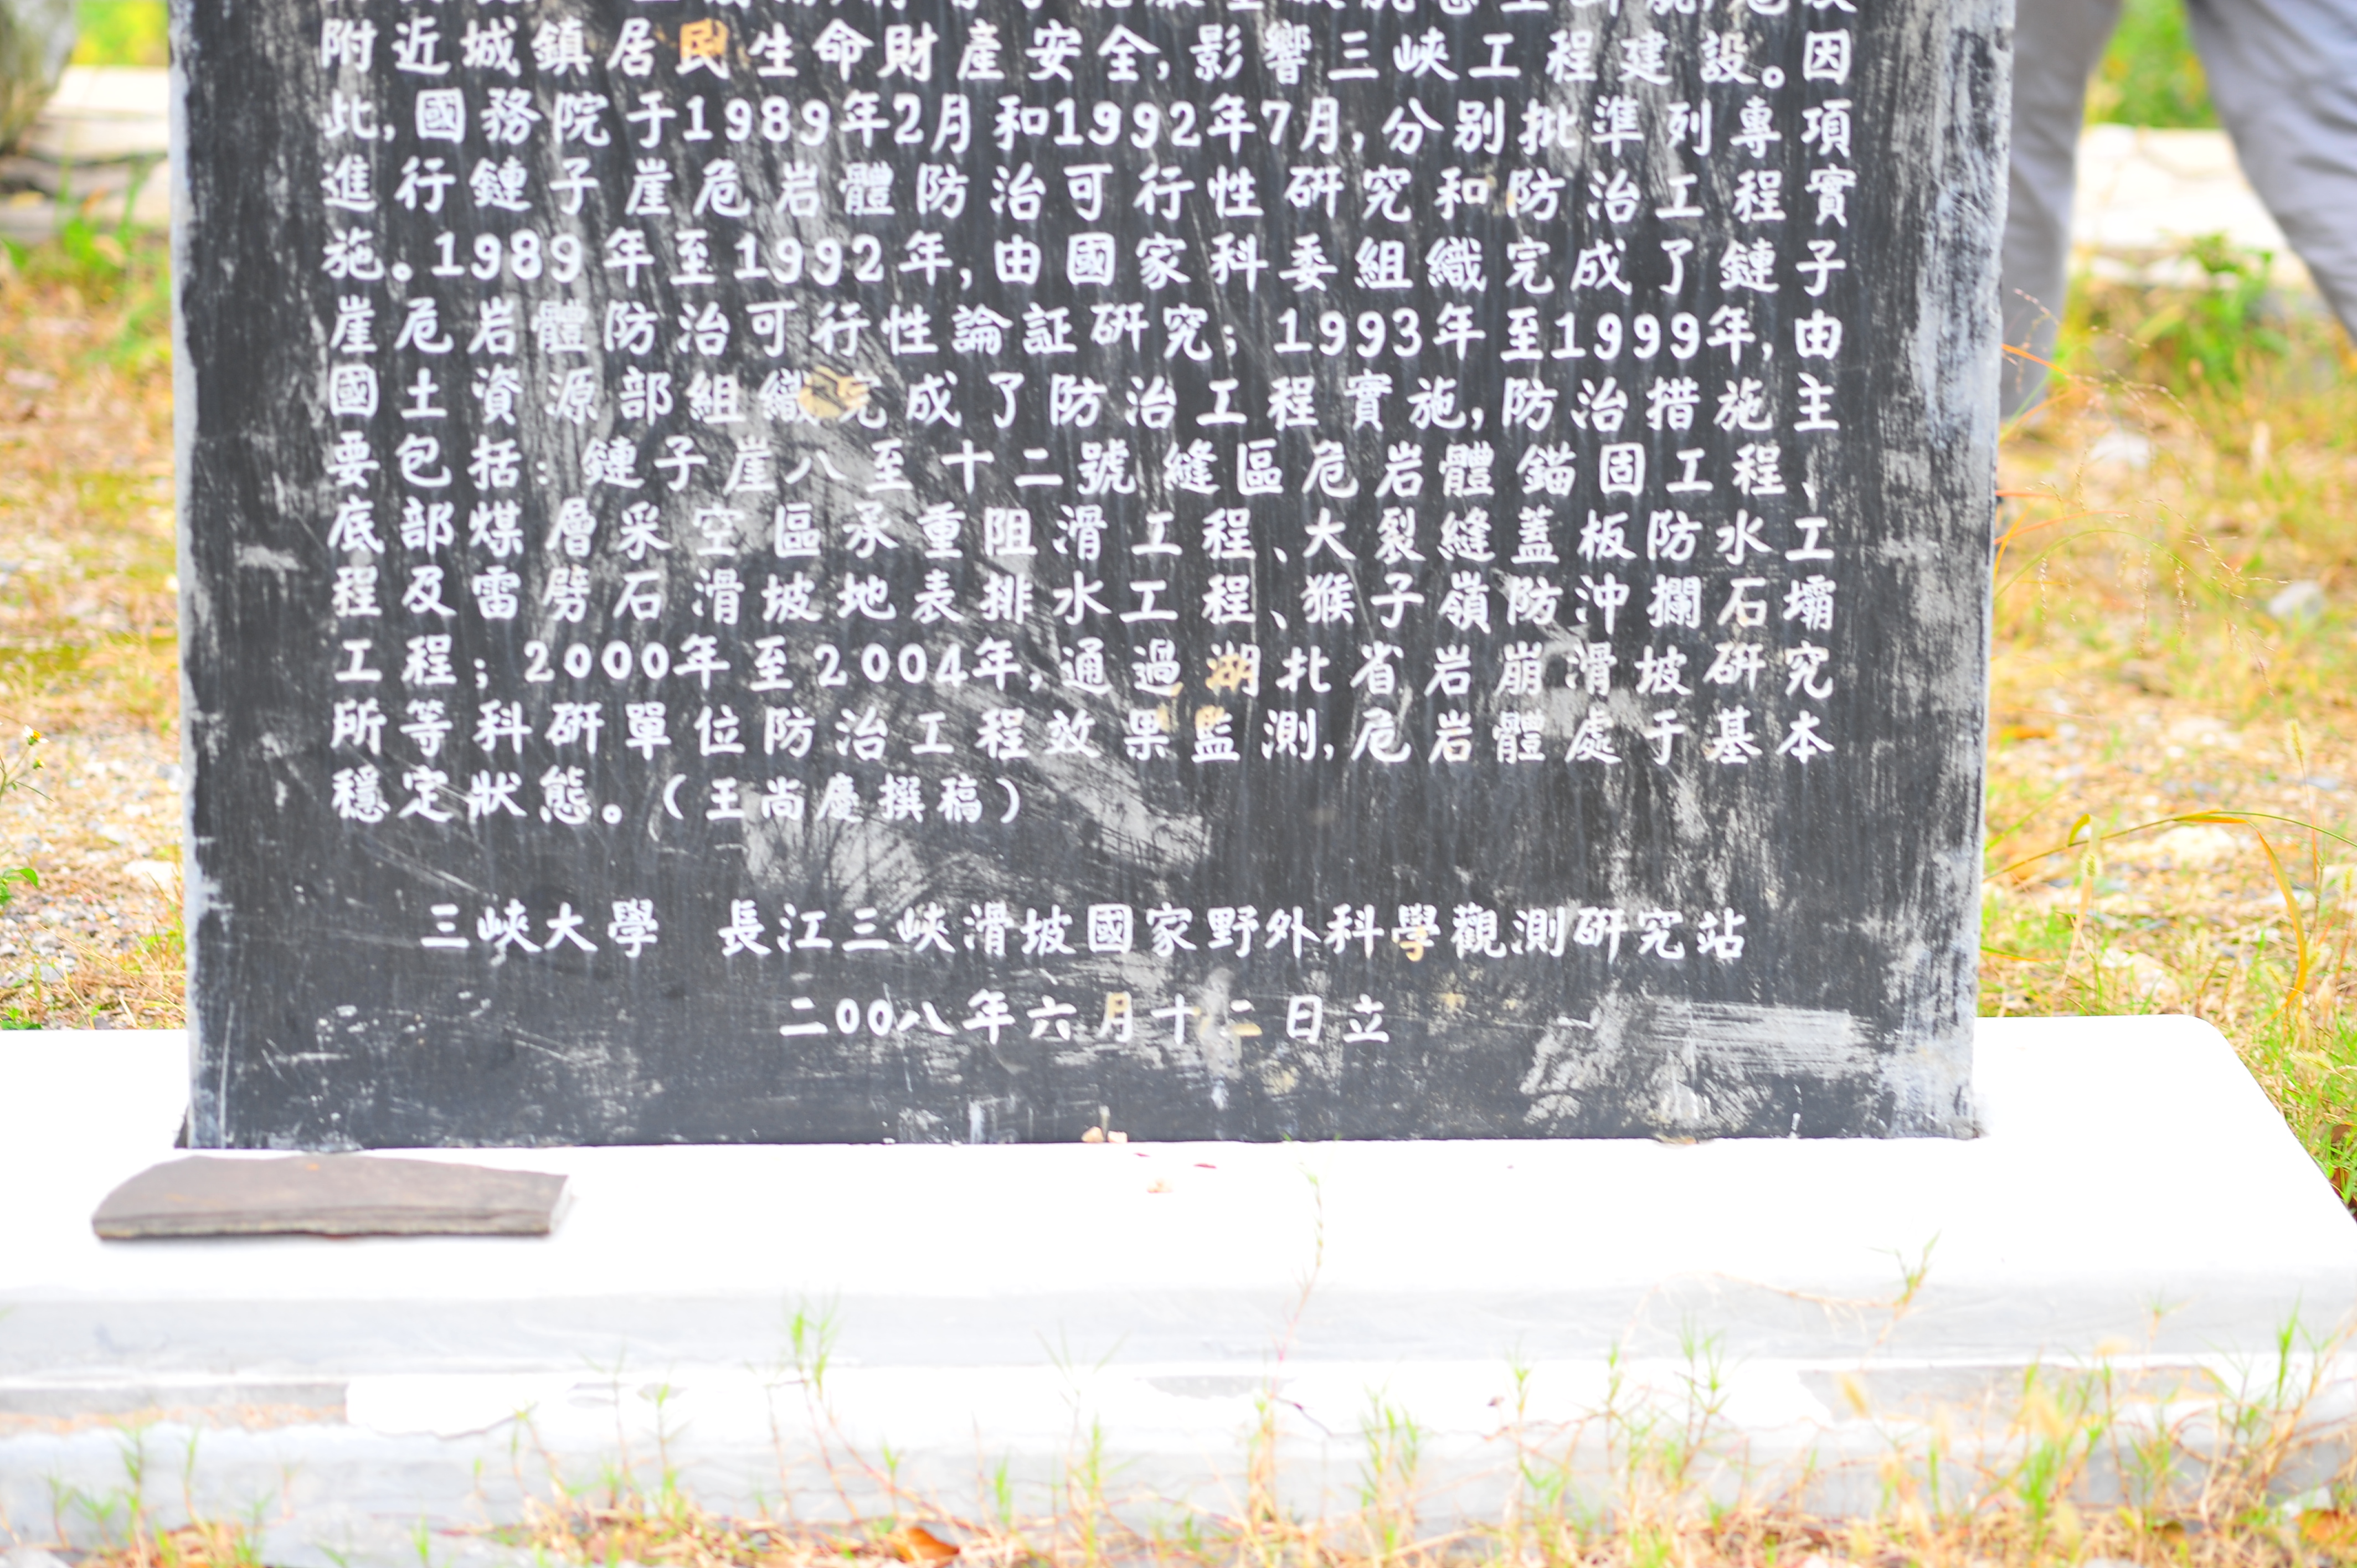 附近城鎮居民生命財產安全,影響三峽工程建設。因
此,國務院于1989年2月和1992年7月,分别批準列專項
進行鏈子崖危岩體防治可行性研究和防治工程實
施。1989年至1992年,由國家科委組織完成了鏈子
崖危岩體防治可行性論証研究;1993年至1999年,由
國土資源部組織完成了防治工程實施,防治措施主
要包括:鏈子崖八至十二號縫區危岩體錨固工程、
底部煤層采空區承重阻滑工程、大裂縫蓋板防水工
程及雷劈石滑坡地表排水工程、猴子嶺防沖攔石壩
工程;2000年至2004年,通過湖北省岩崩滑坡研究
所等科研單位防治工程效果監測,危岩體處于基本
穩定狀態。(王尚慶撰稿)
三峽大學 長江三峽滑坡國家野外科學觀測研究站
二00八年六月十二日立